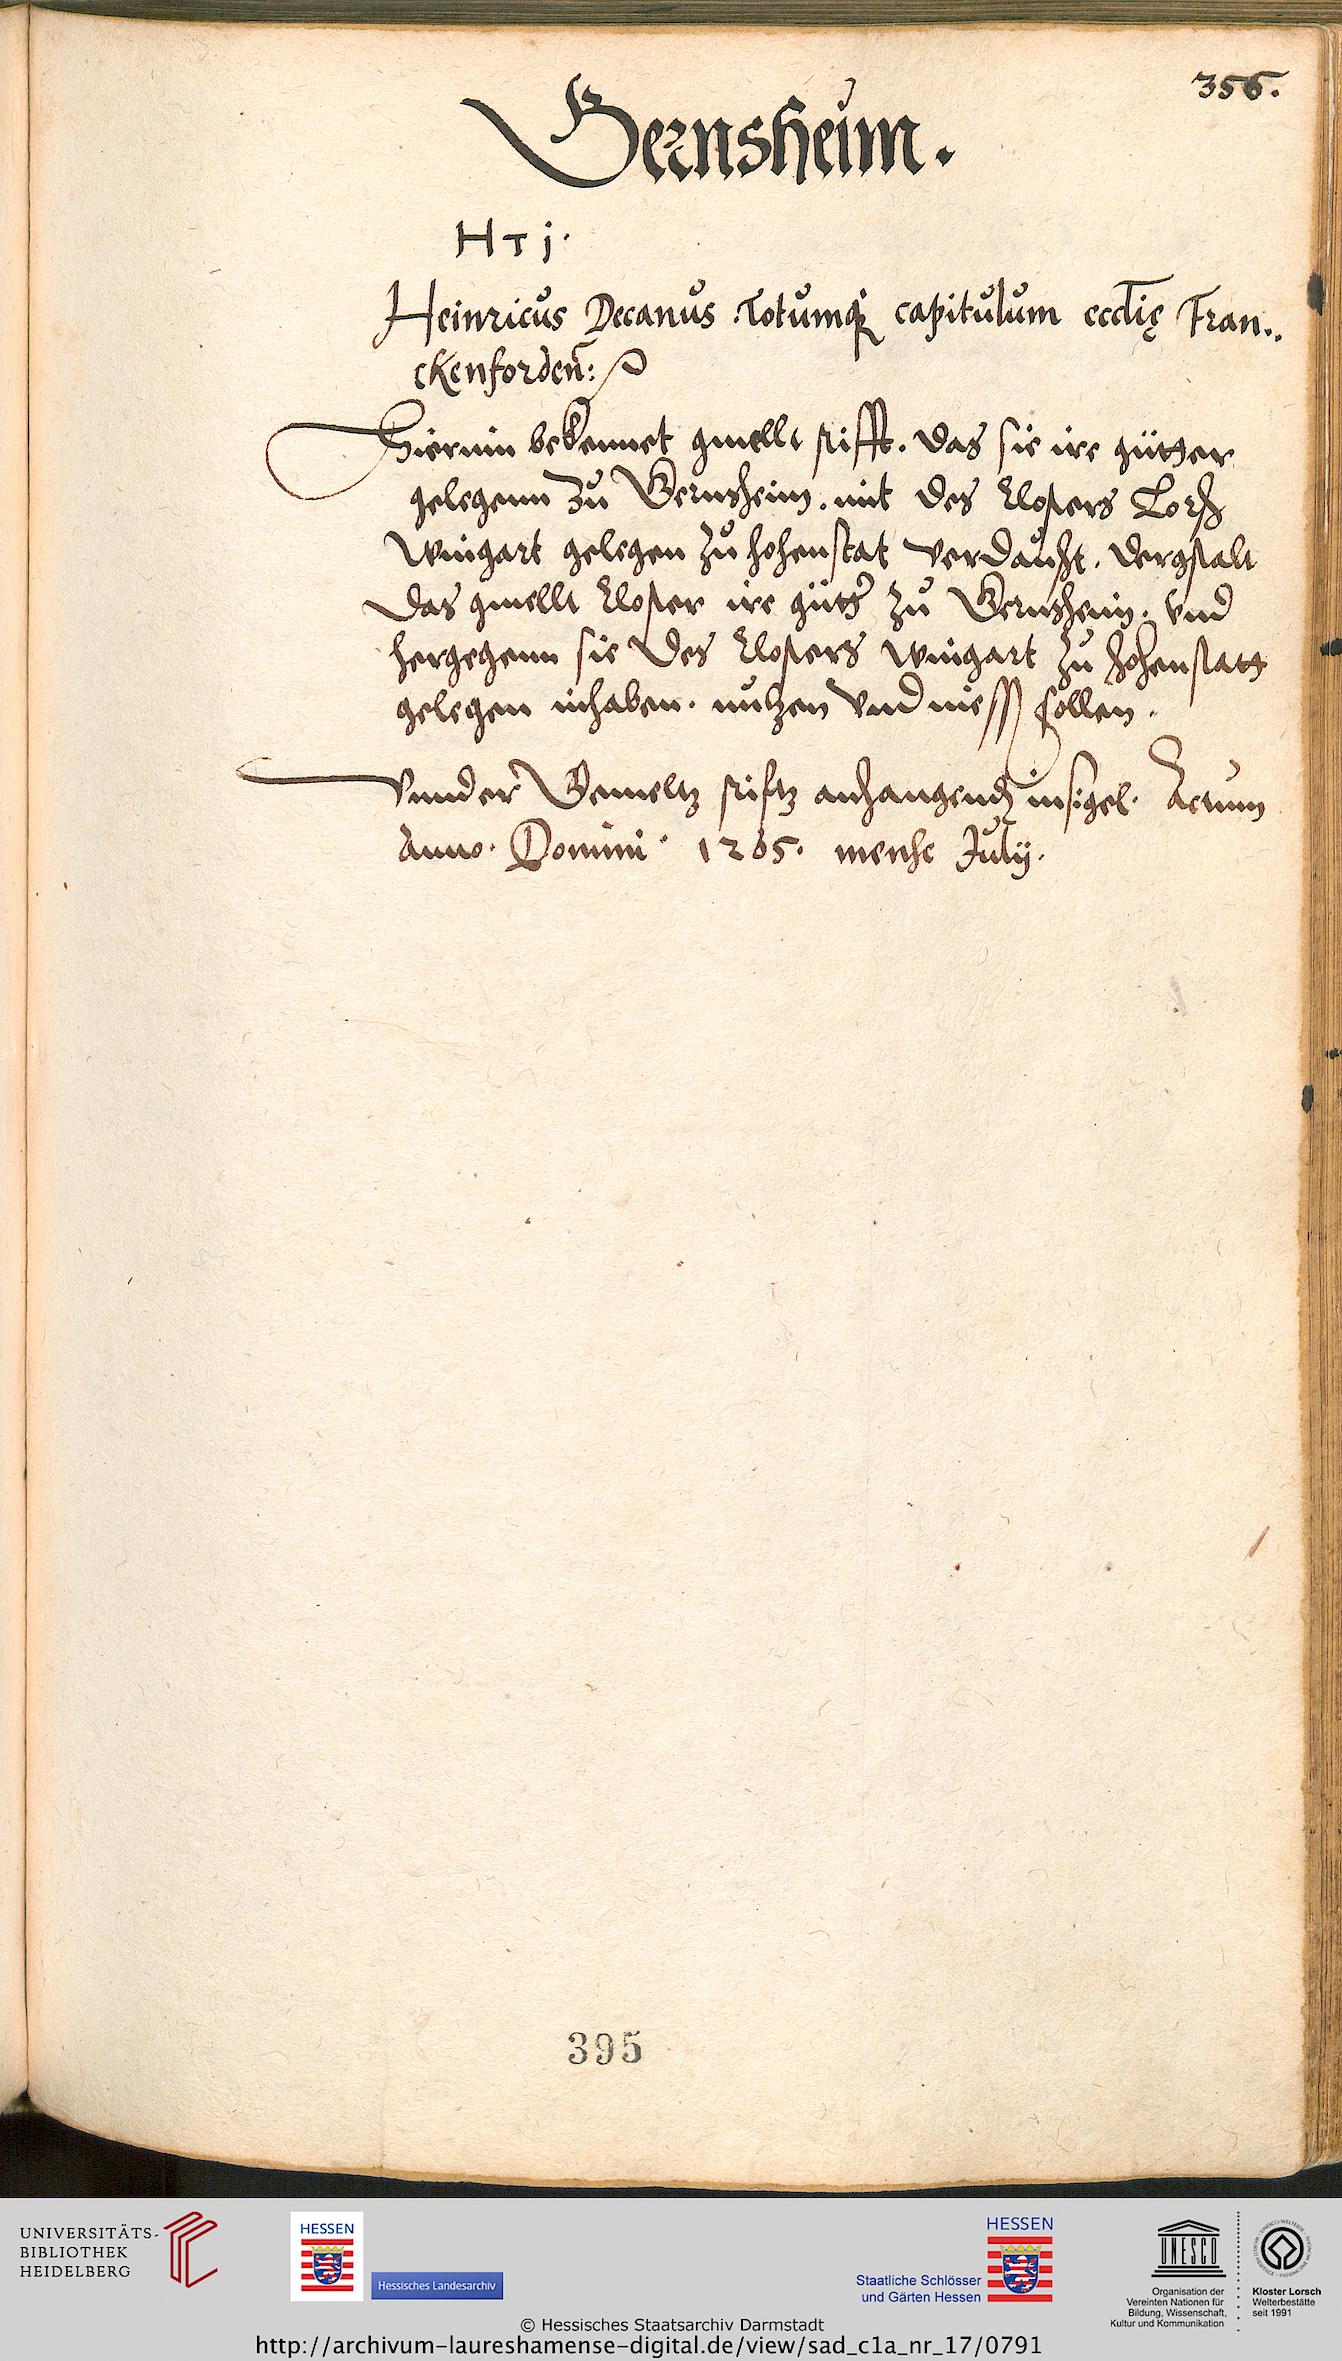 356.
Gernsheim.
H T j.
Heinricus Decanus Totumq; capitulum ecclię Fran..
ckenforden:
Hierinn bekennet gmellt stifft. das sie ire gütter
gelegenn zů Gernsheim. mit des klosters Lorsch
wingart gelegen zů hohenstat verdauscht. dergstalt
das gmellt kloster ire gütter zů Gernsheim. vnd
hergegenn sie des klosters wingart zů hohenstatt
gelegen inhaben. nutzen vnd niessen sollen.
Vnnder Gemeltz stiftz anhangendem insigel. Actum
Anno. Domini. 1265. mense July.
395
UNIVERSITÄTS-
BIBLIOTHEK
HEIDELBERG
HESSEN
Hessisches Landesarchiv
HESSEN
Staatliche Schlösser
und Gärten Hessen
UNESCO
Organisation der
Vereinten Nationen für
Bildung, Wissenschaft,
Kultur und Kommunikation
Kloster Lorsch
Welterbestätte
seit 1991
© Hessisches Staatsarchiv Darmstadt
http://archivum-laureshamense-digital.de/view/sad_c1a_nr_17/0791